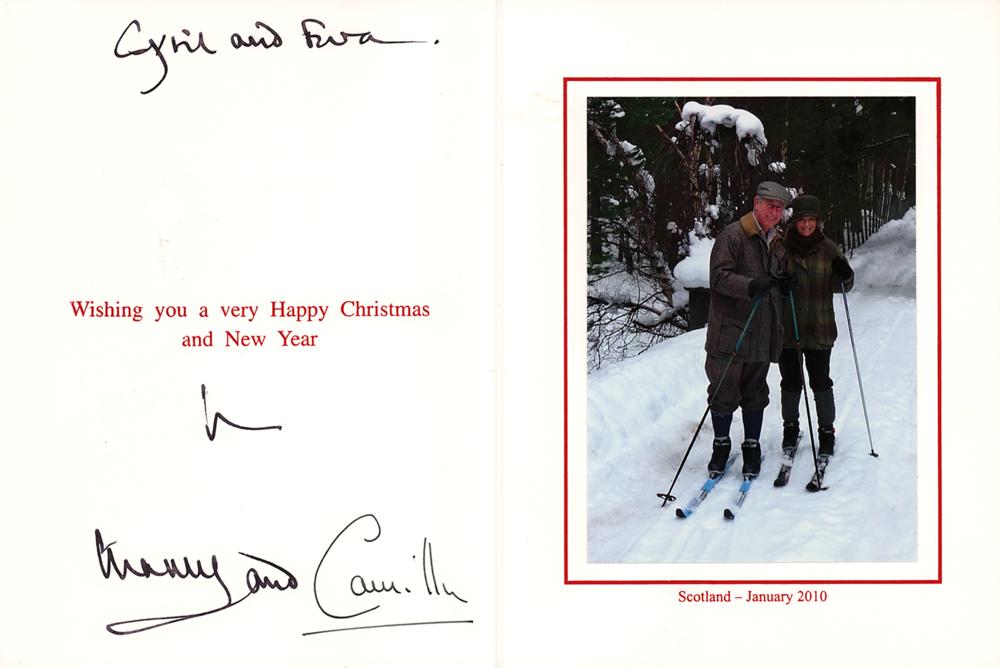 Cyril and Eva.
Wishing you a very Happy Christmas
and New Year
and Camilla
Scotland – January 2010